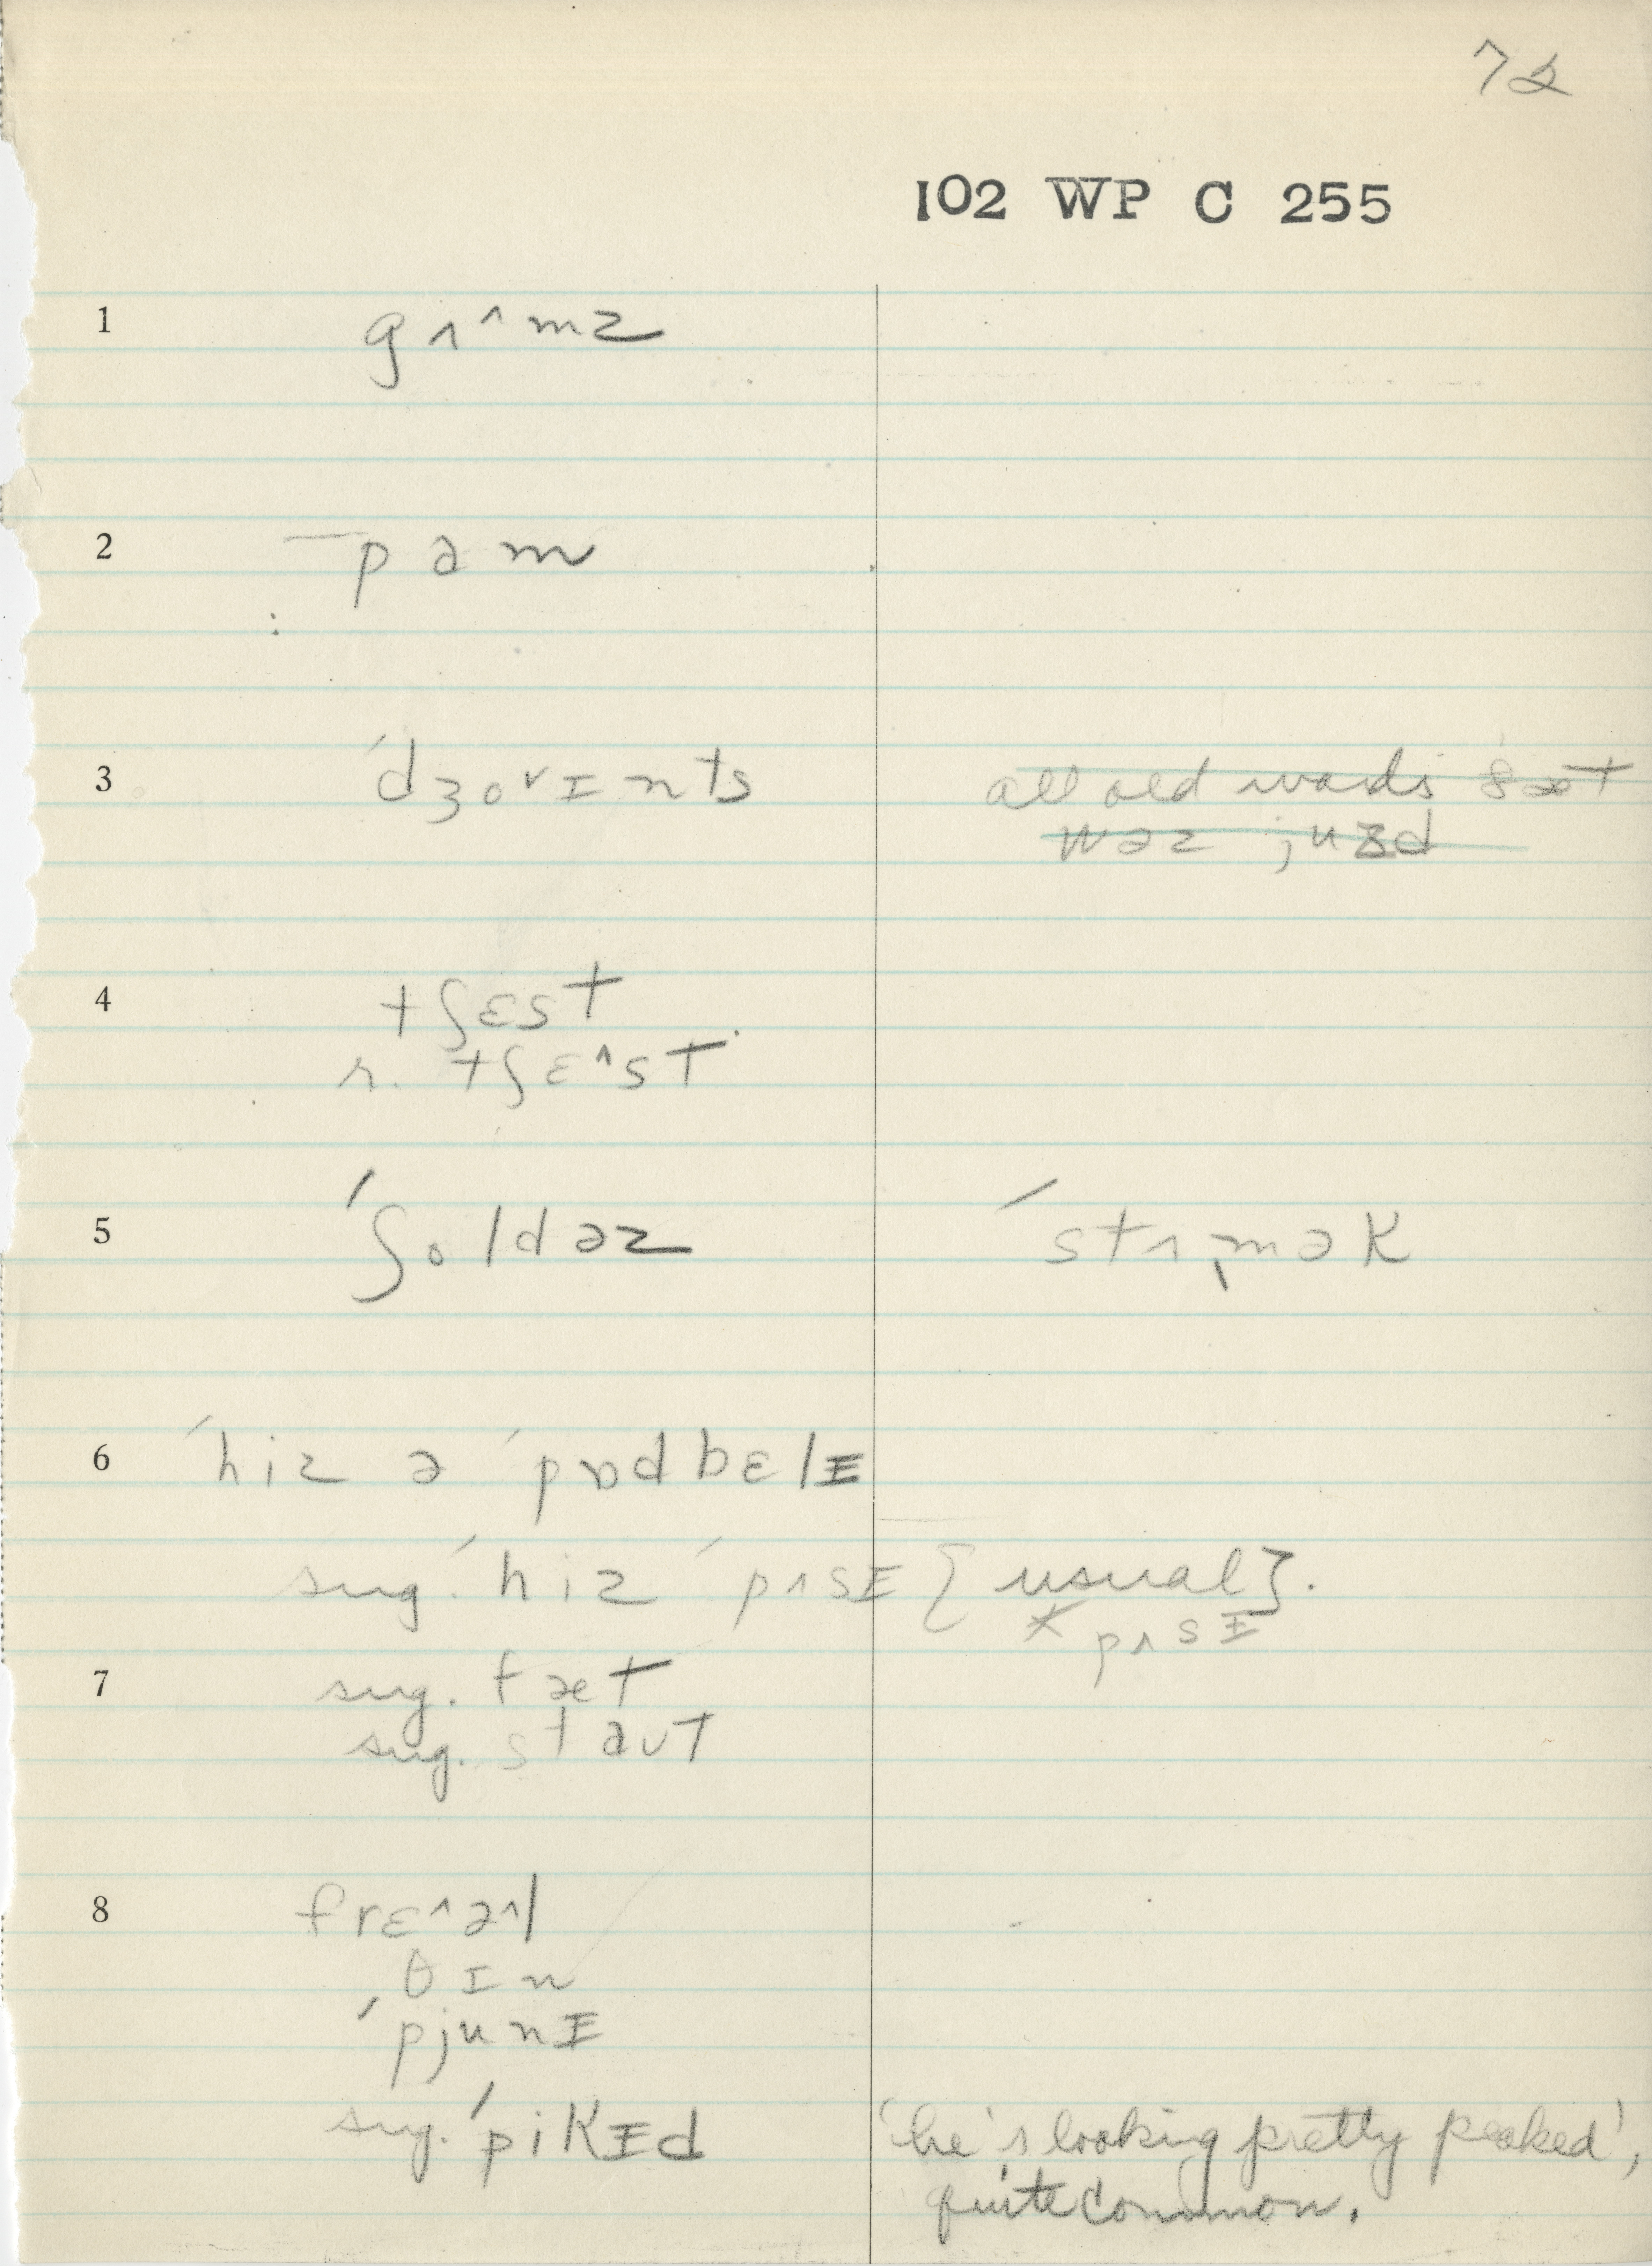 72
102 WP C 255
1 gʌ^mz
2 pɑm
3 ˈdʒo˅ɪnts all old words ðæt
wəz juzd
4 tʃɛst
r. tʃɛ^st
5 ˈʃoldəz ˈstʌmək
6 ˈhiz ə ˈpɒdbɛlɪ
sug. ˈhiz ˈpʌsɪ {usual}.
x pʌsɪ
7 sug. fæt
sug. staʊt
8 frɛ^ə^l
θɪn
ˈpjunɪ
sug. ˈpikɪd 'he's looking pretty peaked',
quite common.